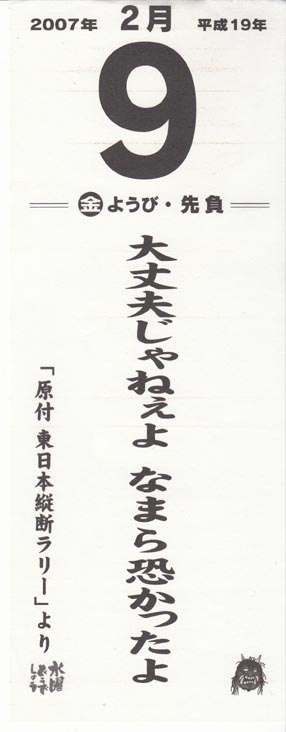 2007年 2月 平成19年
9
金 ようび・先負
大丈夫じゃねぇよ なまら恐かったよ
「原付 東日本縦断ラリー」より
水曜どうでしょう